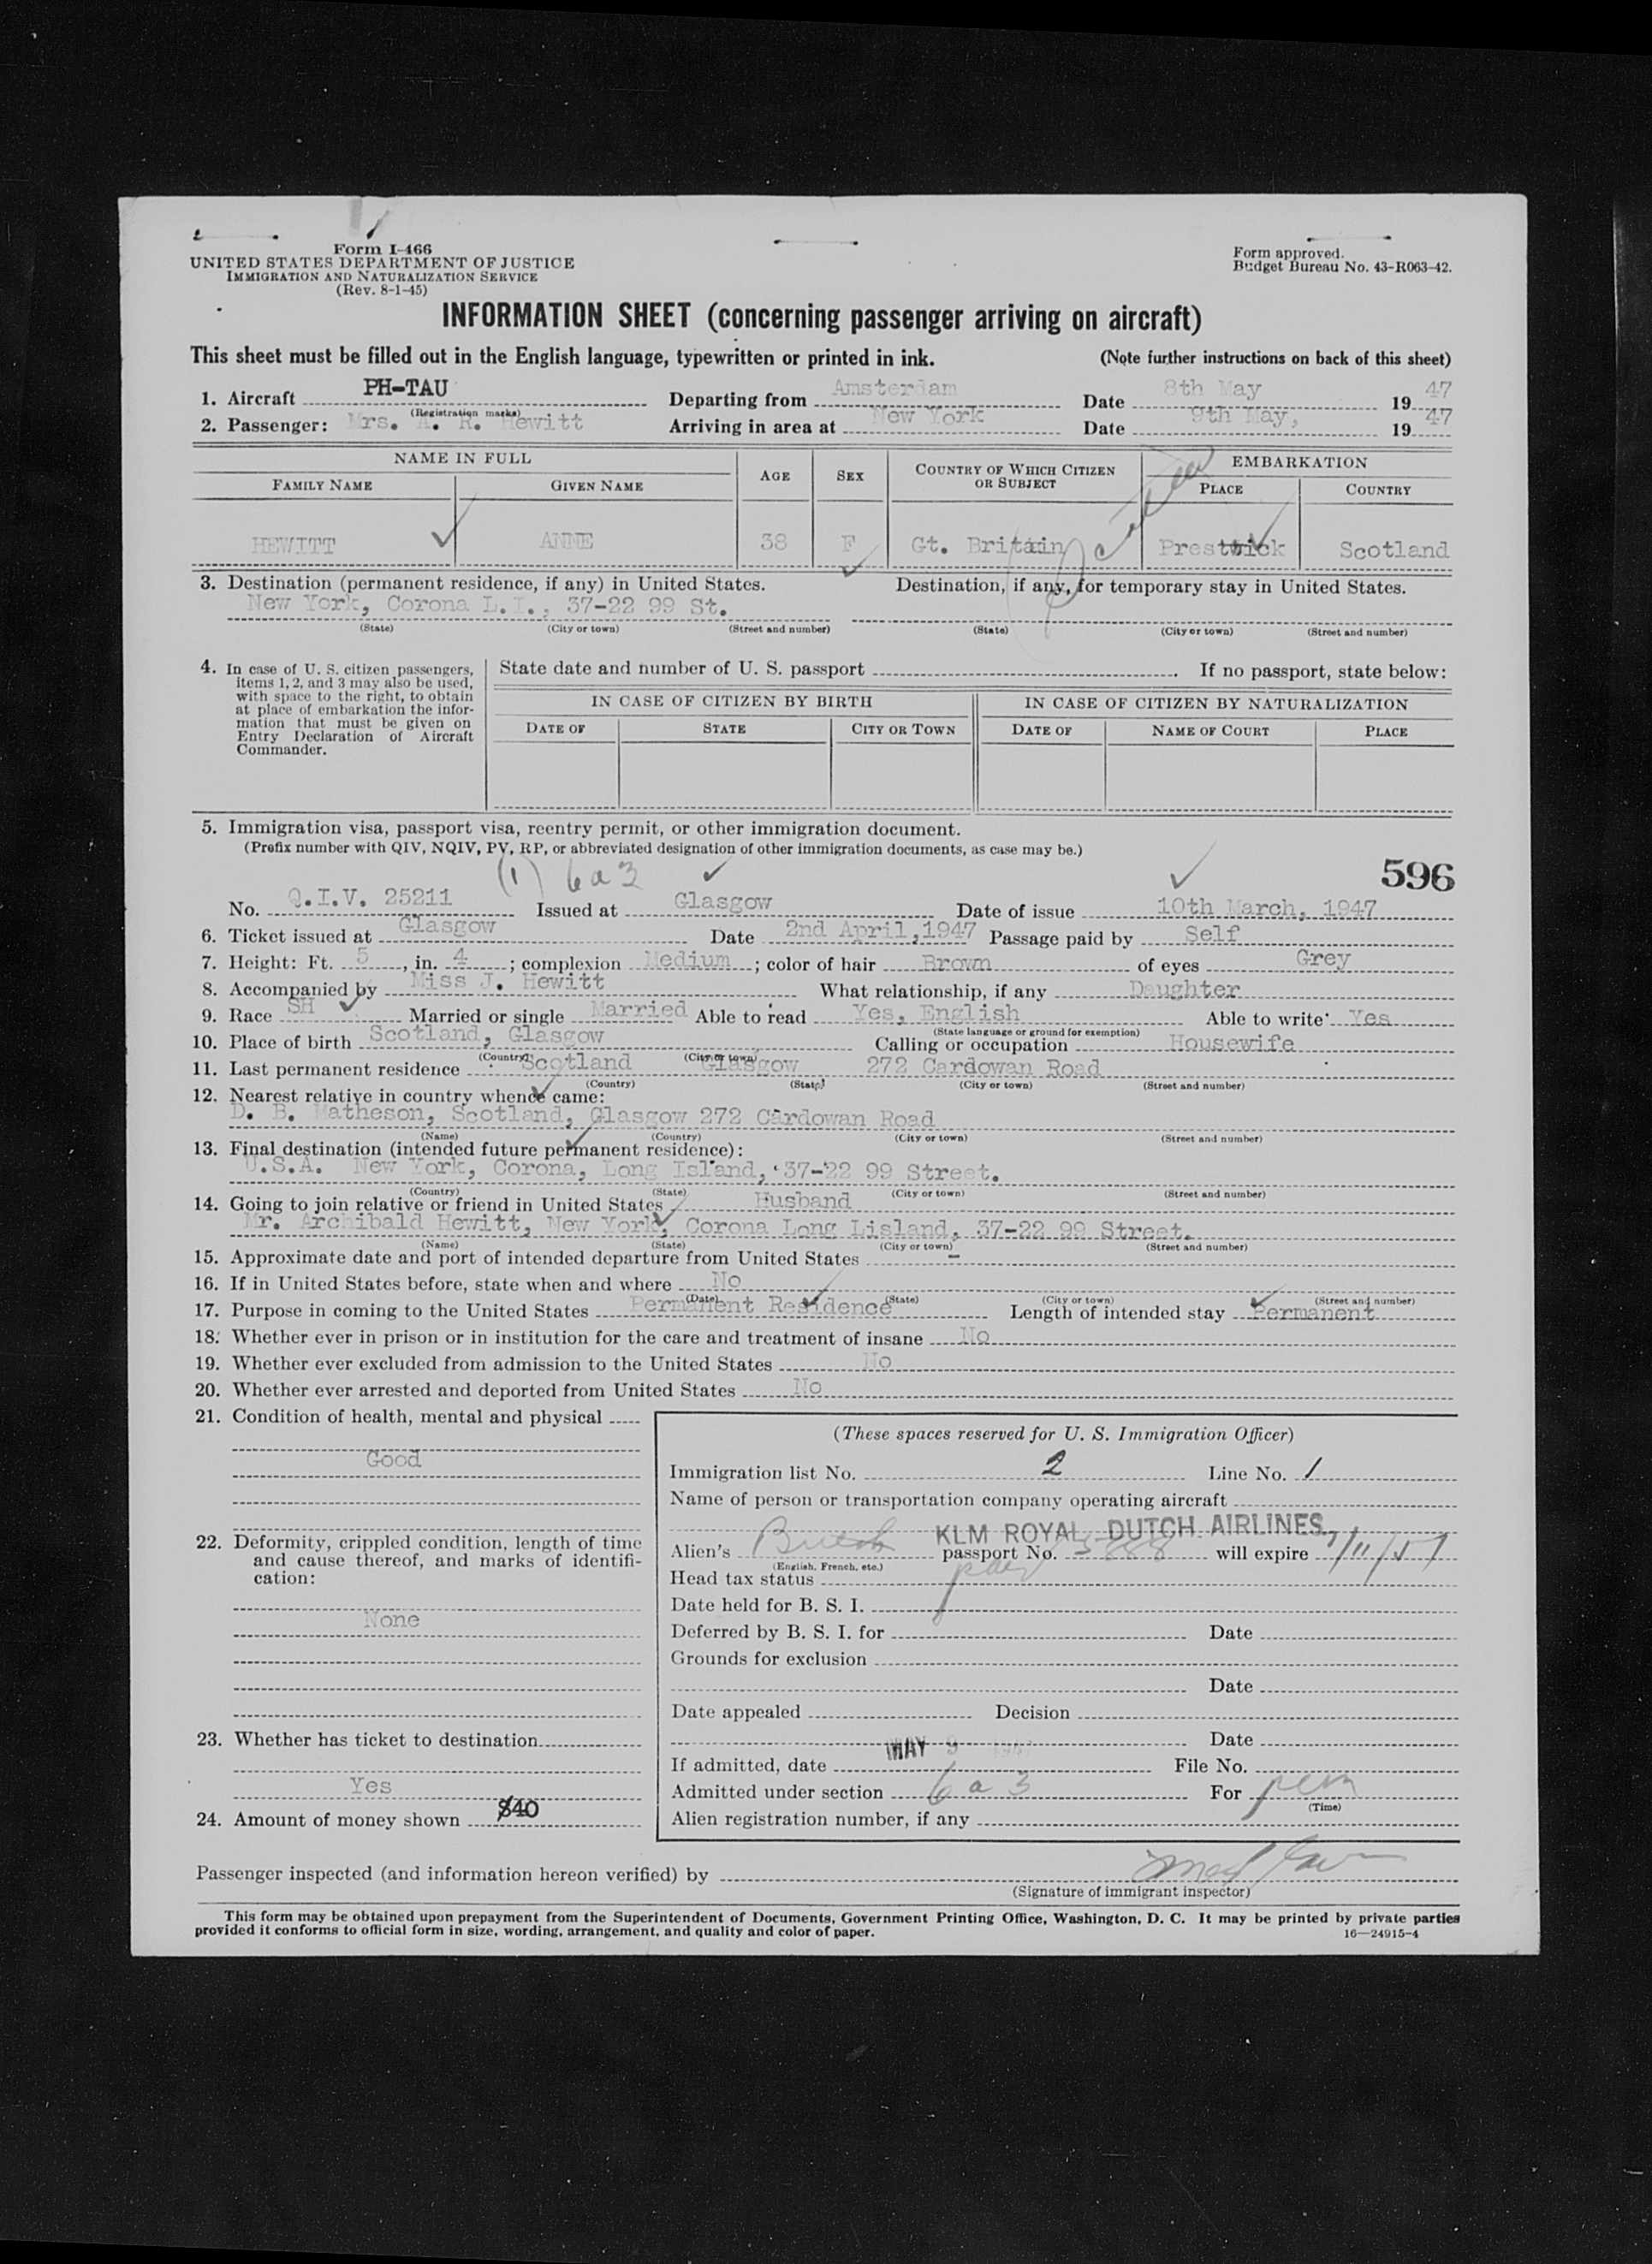 Form I-466
UNITED STATES DEPARTMENT OF JUSTICE
IMMIGRATION AND NATURALIZATION SERVICE
(Rev. 8-1-45)
Form approved.
Budget Bureau No. 43-R063-42.
INFORMATION SHEET (concerning passenger arriving on aircraft)
This sheet must be filled out in the English language, typewritten or printed in ink. (Note further instructions on back of this sheet)
1. Aircraft PH-TAU Departing from Amsterdam Date 8th May 1947
(Registration marks)
2. Passenger: Mrs. A. R. Hewitt Arriving in area at New York Date 9th May, 1947
NAME IN FULL AGE SEX COUNTRY OF WHICH CITIZEN OR SUBJECT EMBARKATION
FAMILY NAME GIVEN NAME PLACE COUNTRY
HEWITT ANNE 38 F Gt. Britain Prestwick Scotland
3. Destination (permanent residence, if any) in United States. Destination, if any, for temporary stay in United States.
New York, Corona L.I., 37-22 99 St.
(State) (City or town) (Street and number) (State) (City or town) (Street and number)
4. In case of U. S. citizen passengers, items 1, 2, and 3 may also be used, with space to the right, to obtain at place of embarkation the information that must be given on Entry Declaration of Aircraft Commander.
State date and number of U. S. passport If no passport, state below:
IN CASE OF CITIZEN BY BIRTH IN CASE OF CITIZEN BY NATURALIZATION
DATE OF STATE CITY OR TOWN DATE OF NAME OF COURT PLACE
5. Immigration visa, passport visa, reentry permit, or other immigration document.
(Prefix number with QIV, NQIV, PV, RP, or abbreviated designation of other immigration documents, as case may be.)
(1) 6a3 596
No. Q.I.V. 25211 Issued at Glasgow Date of issue 10th March, 1947
6. Ticket issued at Glasgow Date 2nd April, 1947 Passage paid by Self
7. Height: Ft. 5, in. 4; complexion Medium; color of hair Brown of eyes Grey
8. Accompanied by Miss J. Hewitt What relationship, if any Daughter
9. Race SH Married or single Married Able to read Yes, English Able to write Yes
(State language or ground for exemption)
10. Place of birth Scotland, Glasgow Calling or occupation Housewife
(Country) (City or town)
11. Last permanent residence Scotland Glasgow 272 Cardowan Road
(Country) (State) (City or town) (Street and number)
12. Nearest relative in country whence came:
D. B. Matheson, Scotland, Glasgow 272 Cardowan Road
(Name) (Country) (City or town) (Street and number)
13. Final destination (intended future permanent residence):
U.S.A. New York, Corona, Long Island, 37-22 99 Street.
(Country) (State) (City or town) (Street and number)
14. Going to join relative or friend in United States Husband
Mr. Archibald Hewitt, New York, Corona Long Lisland, 37-22 99 Street.
(Name) (State) (City or town) (Street and number)
15. Approximate date and port of intended departure from United States -
16. If in United States before, state when and where No
(Date) (State) (City or town) (Street and number)
17. Purpose in coming to the United States Permanent Residence Length of intended stay Permanent
18. Whether ever in prison or in institution for the care and treatment of insane No
19. Whether ever excluded from admission to the United States No
20. Whether ever arrested and deported from United States No
21. Condition of health, mental and physical
Good
22. Deformity, crippled condition, length of time and cause thereof, and marks of identification:
None
23. Whether has ticket to destination
Yes
24. Amount of money shown $40
(These spaces reserved for U. S. Immigration Officer)
Immigration list No. 2 Line No. 1
Name of person or transportation company operating aircraft
KLM ROYAL DUTCH AIRLINES
Alien's British passport No. will expire
(English, French, etc.)
Head tax status paid
Date held for B. S. I.
Deferred by B. S. I. for Date
Grounds for exclusion
Date
Date appealed Decision
Date
If admitted, date MAY 9 1947 File No.
Admitted under section 6a3 For perm
(Time)
Alien registration number, if any
Passenger inspected (and information hereon verified) by
(Signature of immigrant inspector)
This form may be obtained upon prepayment from the Superintendent of Documents, Government Printing Office, Washington, D. C. It may be printed by private parties
provided it conforms to official form in size, wording, arrangement, and quality and color of paper. 16—24915-4